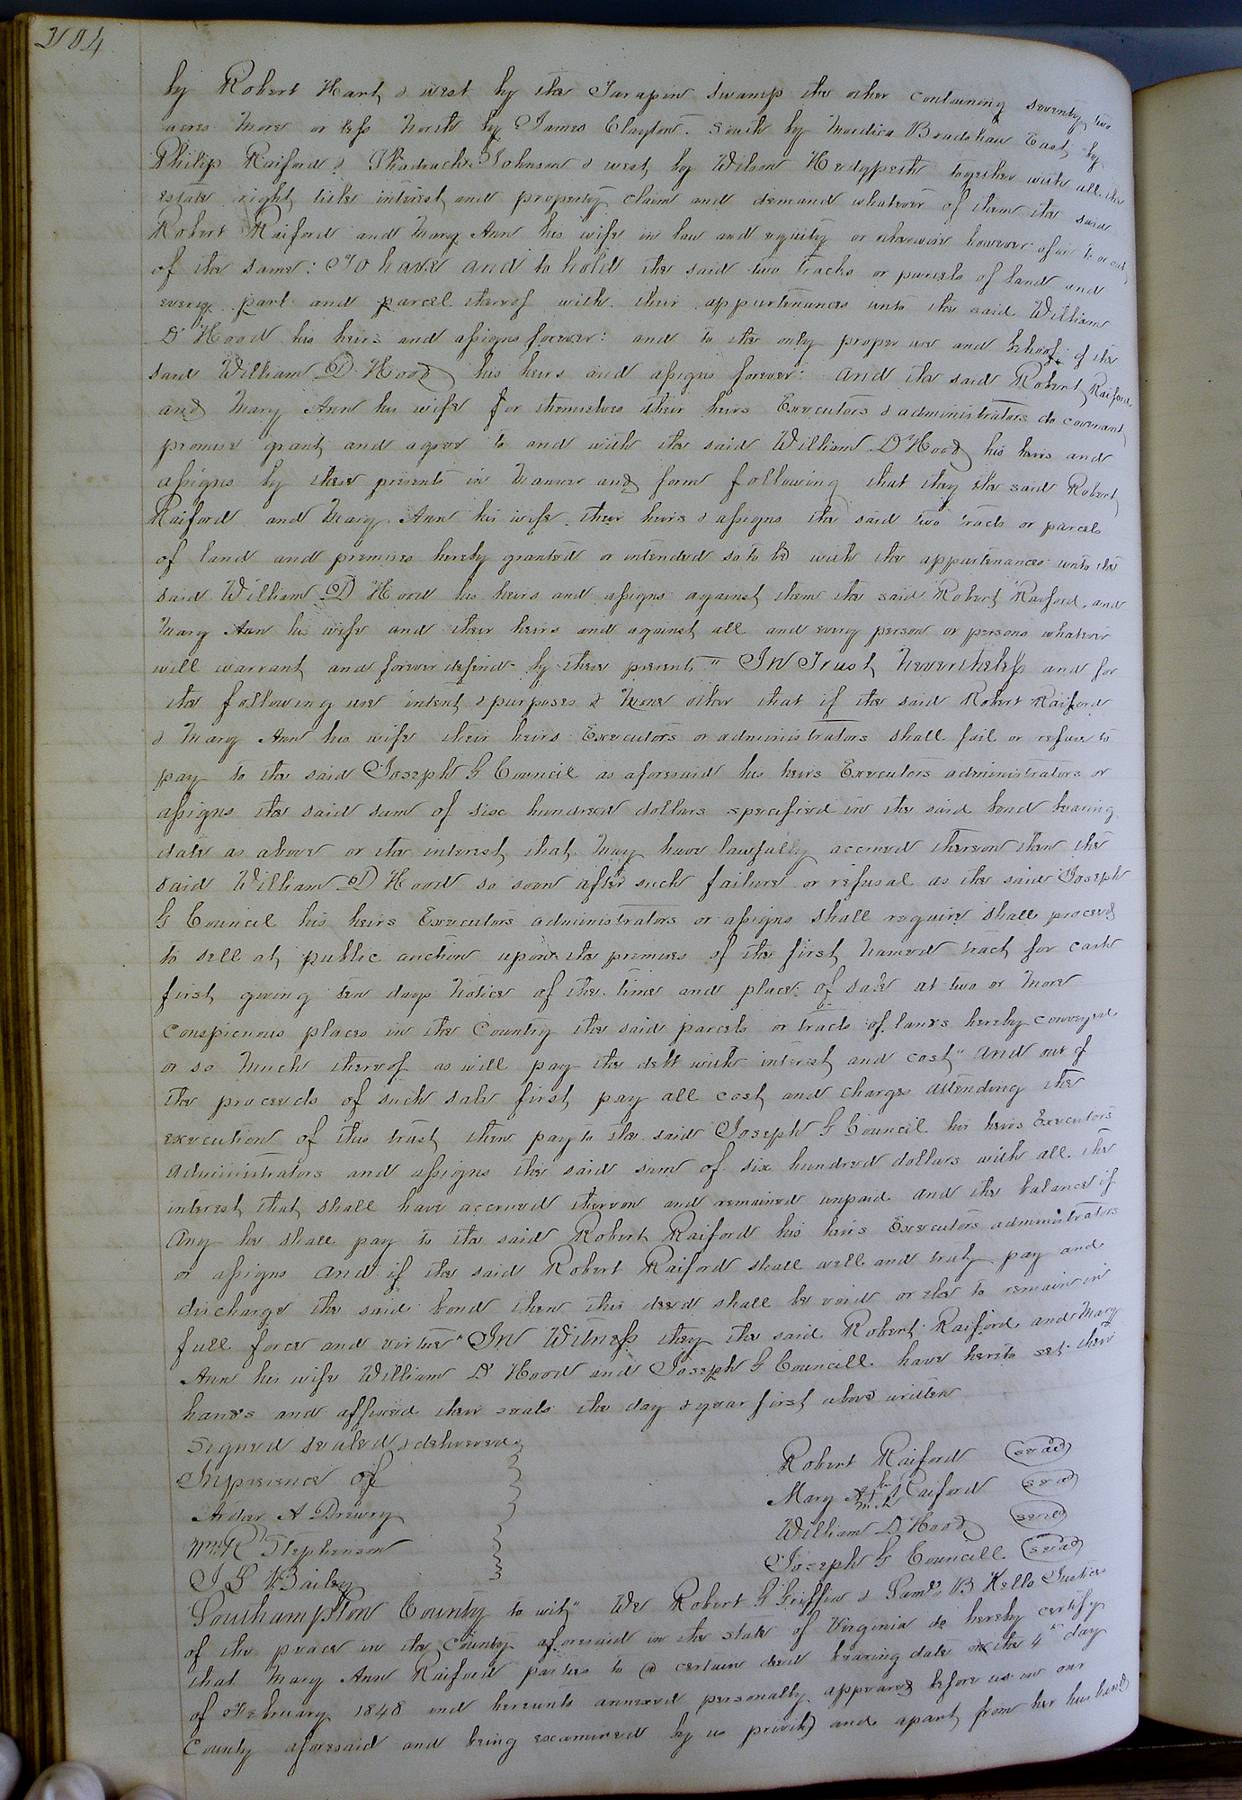 204
by Robert Hart & west by the Tarapin Swamp the other containing seventy two
acres more or less North by James Clayton. South by Mordica Bradshaw East by
Philip Raiford & Shadrack Johnson & west by Wilson Hedgpeth together with all the
estate right title interest and property claim and demand whatever of them the said
Robert Raiford and Mary Ann his wife in law and equity or otherwise however of in to or out
of the same: To have and to hold the said two tracks or parcels of land and
every part and parcel thereof with their appurtenances unto the said William
D Hood his heirs and assigns forever: and to the only proper use and behoof of the
said William D Hood his heirs and assigns forever: and the said Robert Raiford
and Mary Ann his wife for themselves their heirs Executors & administrators do covenant
promise grant and agree to and with the said William D Hood his heirs and
assigns by these presents in manner and form following that they the said Robert
Raiford and Mary Ann his wife their heirs & assigns the said two tracts or parcels
of land and premises hereby granted or intended so to be with the appurtenances unto the
said William D Hood his heirs and assigns against them the said Robert Raiford and
Mary Ann his wife and their heirs and against all and every person or persons whatever
will warrant and forever defend by these presents" In Trust Nevertheless and for
the following use intent & purposes & none other that if the said Robert Raiford
& Mary Ann his wife their heirs Executors or administrators shall fail or refuse to
pay to the said Joseph G Council as aforesaid his heirs Executors administrators or
assigns the said sum of six hundred dollars specified in the said bond bearing
date as above or the interest that may have lawfully accrued thereon then the
said William D Hood so soon after such failure or refusal as the said Joseph
G Council his heirs Executors administrators or assigns shall require shall proceed
to sell at public auction upon the premises of the first named tract for cash
first giving ten days notice of the time and place of sale at two or more
conspicuous places in the Country the said parcels or tracts of lands hereby conveyed
or so much thereof as will pay the debt with interest and cost" and out of
the proceeds of such sale first pay all cost and charges attending the
execution of this trust then pay to the said Joseph G Council his heirs Executors
administrators and assigns the said sum of six hundred dollars with all the
interest that shall have accrued thereon and remained unpaid and the balance if
any he shall pay to the said Robert Raiford his heirs Executors administrators
or assigns and if the said Robert Raiford shall well and truly pay and
discharge the said bond then this deed shall be void or else to remain in
full force and virtue" In Witness they the said Robert Raiford and Mary
Ann his wife William D Hood and Joseph G Councill have hereto set their
hands and affixed their seals the day & year first above written
Signed sealed & delivered
In presence of
Robert Raiford (seal)
A Drewry
Mary A + Raiford (seal)
Wm R Stephenson
William D Hood (seal)
J G Bailey
Joseph G Councill (seal)
Southampton County to wit" We Robert G Griffin & Saml B Kello Justices
of the peace in the County aforesaid in the state of Virginia do hereby certify
that Mary Ann Raiford parties to a certain deed bearing date on the 4th day
of February 1848 and hereunto annexed personally appeared before us in our
County aforesaid and being examined by us privily and apart from her husband